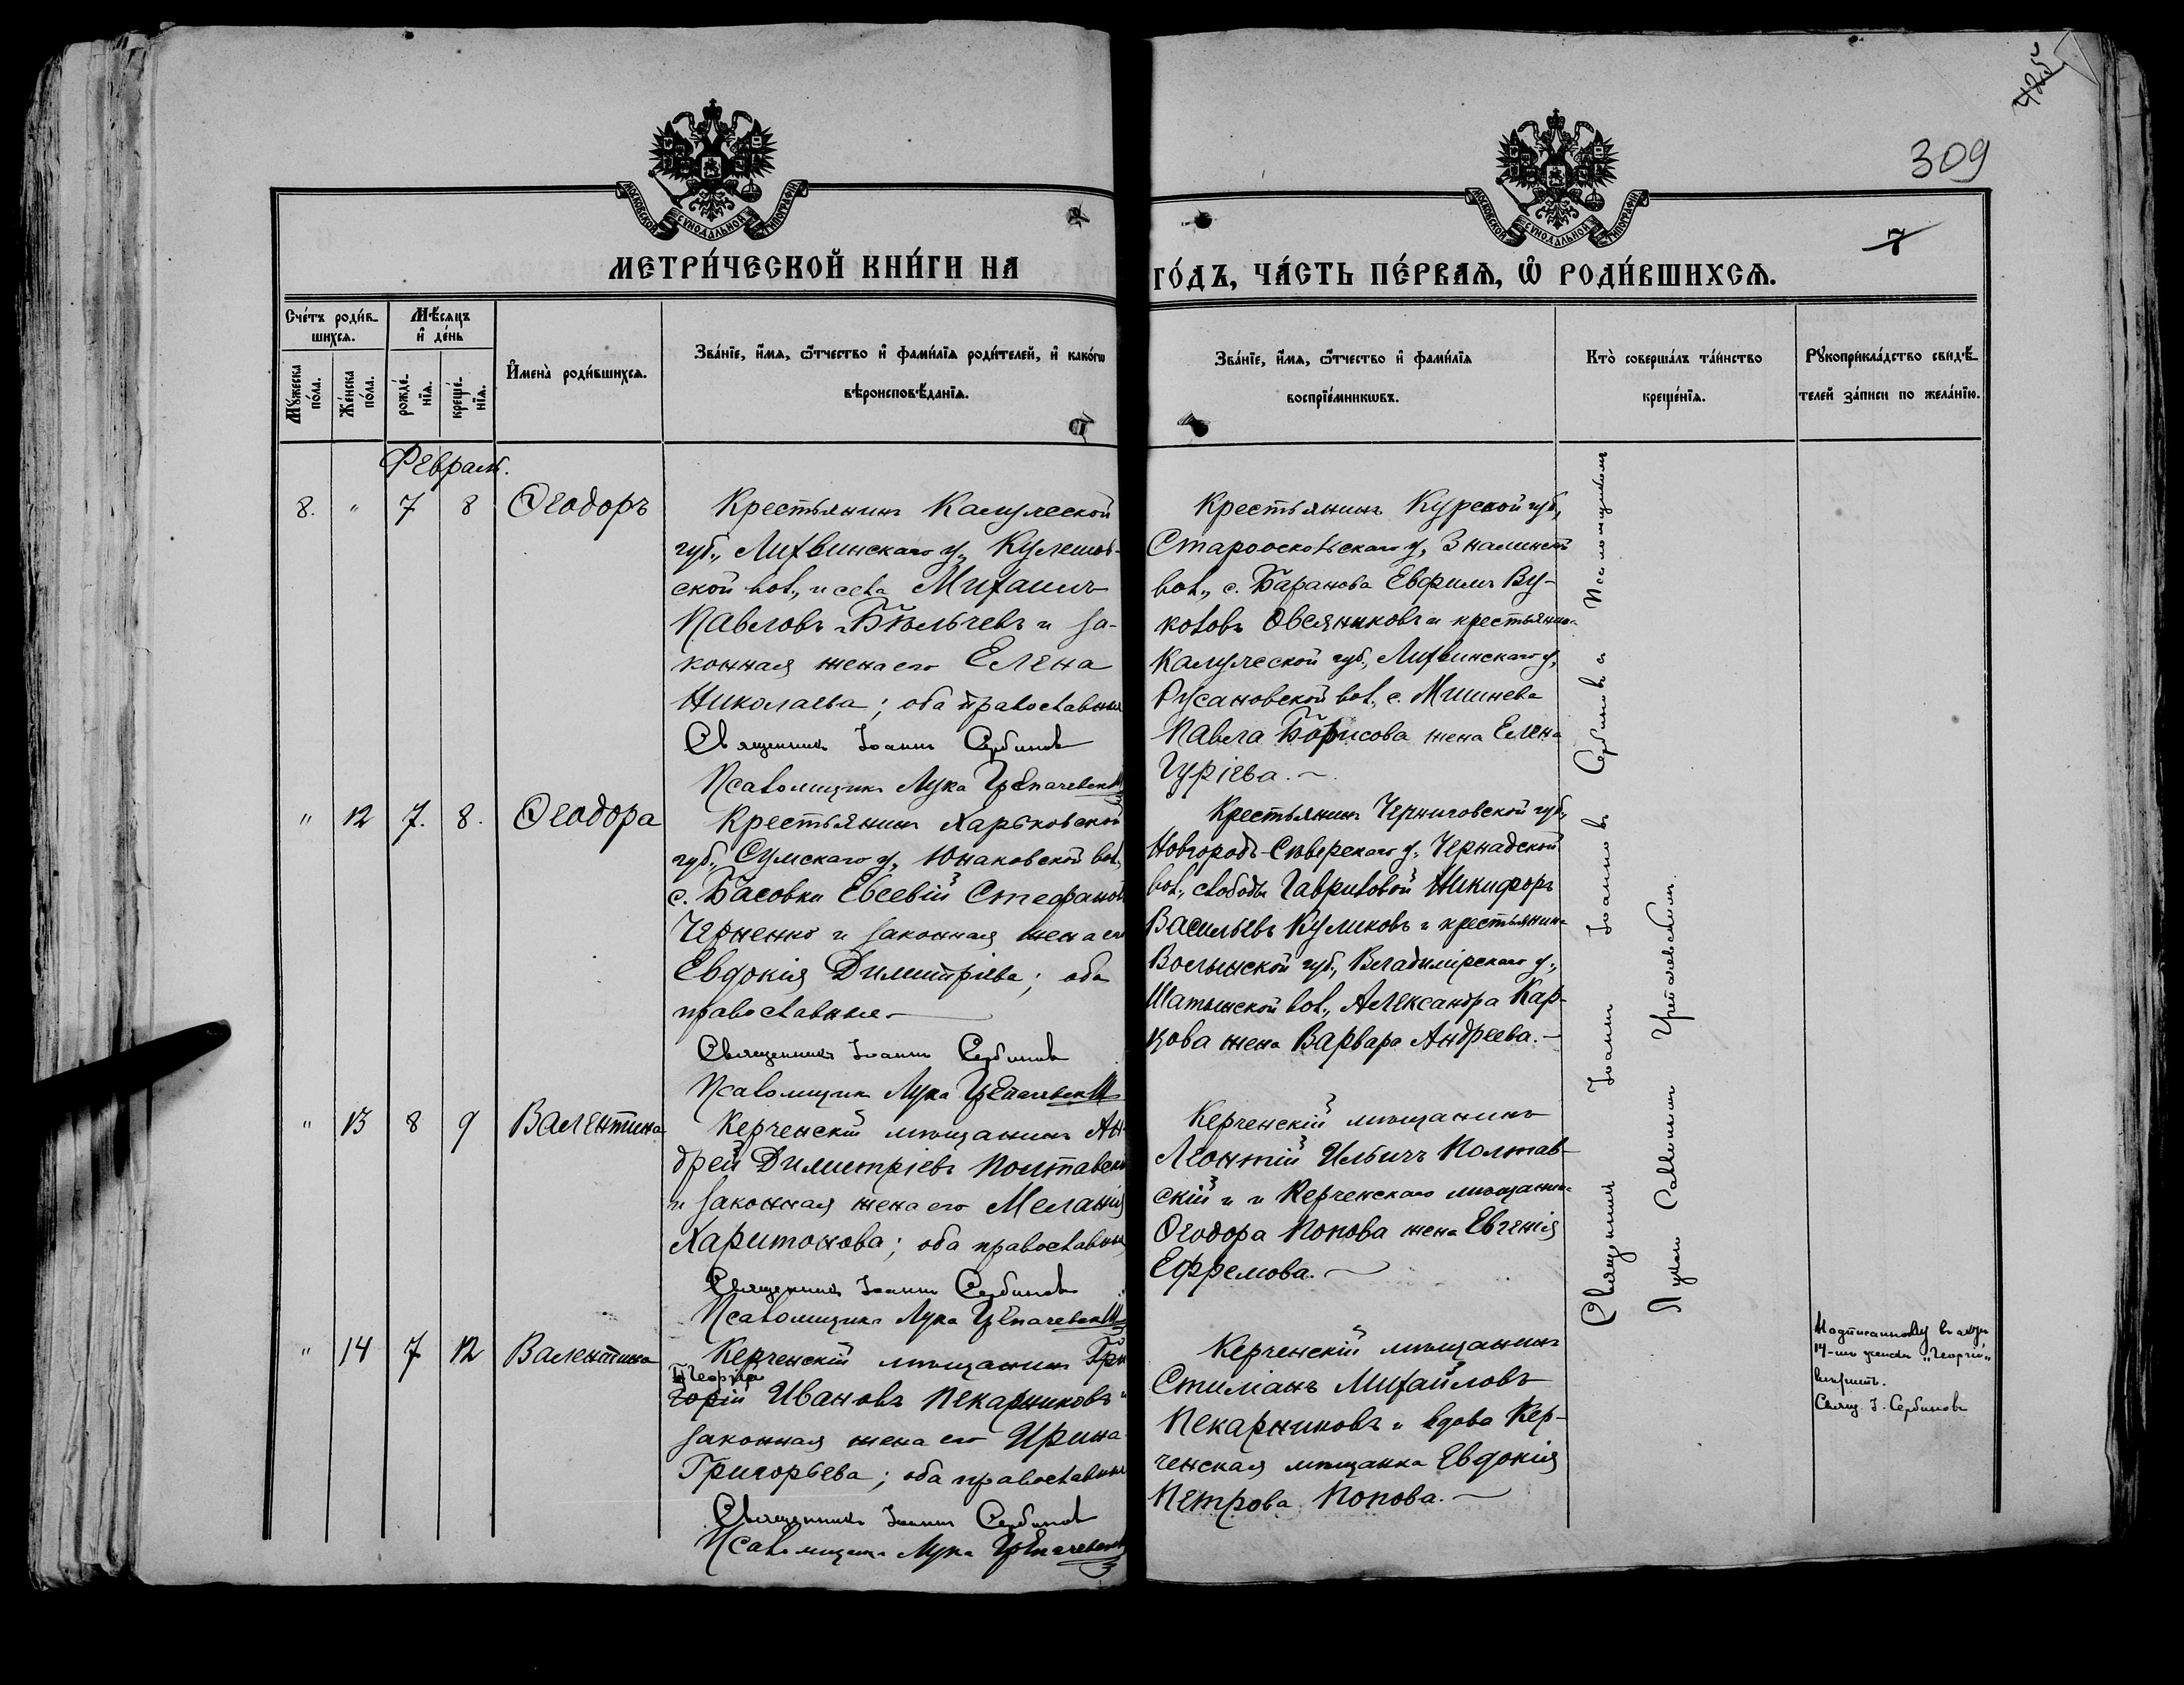 МОСКОВСКОЙ СУНОДАЛЬНОЙ ТИПОГРАФІИ
МОСКОВСКОЙ СУНОДАЛЬНОЙ ТИПОГРАФІИ
425
309
7
МЕТРИ́ЧЕСКОЙ КНИ́ГИ НА
ГО́ДЪ, ЧА́СТЬ ПЕ́РВАЯ, Ѡ҆ РОДИ́ВШИХСЯ.
Сче́тъ роди́в-
шихся.
Мѣ́сяцъ
и҆ де́нь
Му́жеска
по́ла.
Же́нска
по́ла.
рожде́-
нїя.
креще́-
нїя.
И҆мена̀ роди́вшихся.
Зва́нїе, и҆́мя, ѻ҆́тчество и҆ фами́лїя роди́телей, и҆ како́гѡ
вѣроисповѣ́данїя.
Зва́нїе, и҆́мя, ѻ҆́тчество и҆ фами́лїя
воспрїе́мникѡвъ.
Кто̀ соверша́лъ та́инство
креще́нїя.
Рꙋкоприкла́дство свидѣ́-
телей за́писи по жела́нїю.
Февраль.
8. " 7 8 Ѳеодоръ
Крестьянинъ Калужской
губ., Лихвинскаго у., Кулешов-
ской вол., и села Михаилъ
Павловъ Бѣльчевъ и за-
конная жена его Елена
Николаева; оба православные
Священникъ Іоаннъ Сербиновъ
Псаломщикъ Лука
Крестьянинъ Курской губ.,
Старооскольскаго у., Знаменской
вол., с. Баранова Евфимъ Ву-
коловъ Овсяниковъ и крестьянина
Калужской губ., Лихвинскаго у.
Русановской вол., с. Мишнева
Павла Борисова жена Елена
Гуріева.
" 12 7. 8. Ѳеодора
Крестьянинъ Харьковской
губ., Сумскаго у., Юнаковской вол.,
с. Басовки Евсевій Стефановъ
Черненко и законная жена его
Евдокія Димитріева; оба
православные
Священникъ Іоаннъ Сербиновъ
Псаломщикъ Лука
Крестьянинъ Черниговской губ.,
Новгородъ-Сѣверскаго у.,
вол., слободы Гавриловой Никифоръ
Васильевъ Куликовъ и крестьянина
Волынской губ., Владимірскаго у.,
вол., Александра Кар-
цова жена Варвара Андреева.
" 13 8 9 Валентина
Керченскій мѣщанинъ Ан-
дрей Димитріевъ Полтавскій
и законная жена его Меланія
Харитонова; оба православные
Священникъ Іоаннъ Сербиновъ
Псаломщикъ Лука
Керченскій мѣщанинъ
Леонтій Ильичъ Полтав-
скій и и Керченскаго мѣщанина
Ѳеодора Попова жена Евгенія
Ефремова.
" 14 7 12 Валентина
Керченскій мѣщанинъ Гри
Георгій
горій Ивановъ Пекарниковъ и
законная жена его Ирина
Григорьева; оба православные
Священникъ Іоаннъ Сербиновъ
Псаломщикъ Лука
Керченскій мѣщанинъ
Стиліанъ Михайловъ
Пекарниковъ и вдова Кер-
ченская мѣщанка Евдокія
Петрова Попова.
Священникъ Іоаннъ Іоанновъ Сербиновъ съ Псаломщикомъ
Лукою
Надписанному въ актѣ
14-мъ женска "Георгій"
вѣрить.
Свящ. І. Сербиновъ